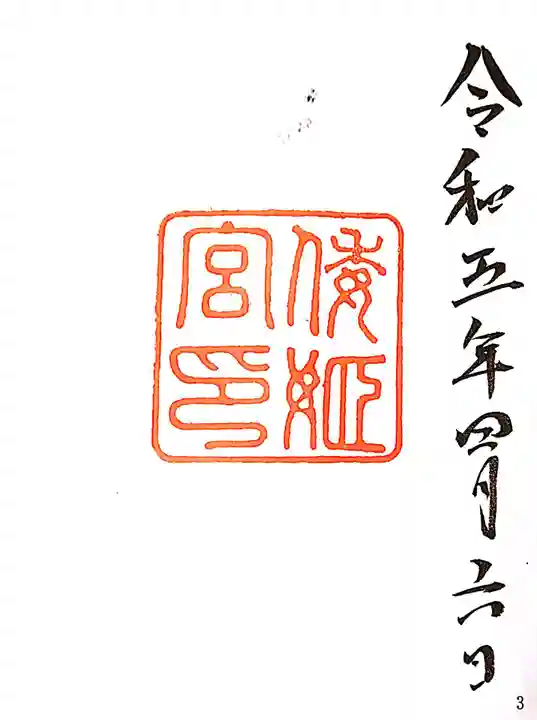 令和五年四月六日
倭姫
宮印
3